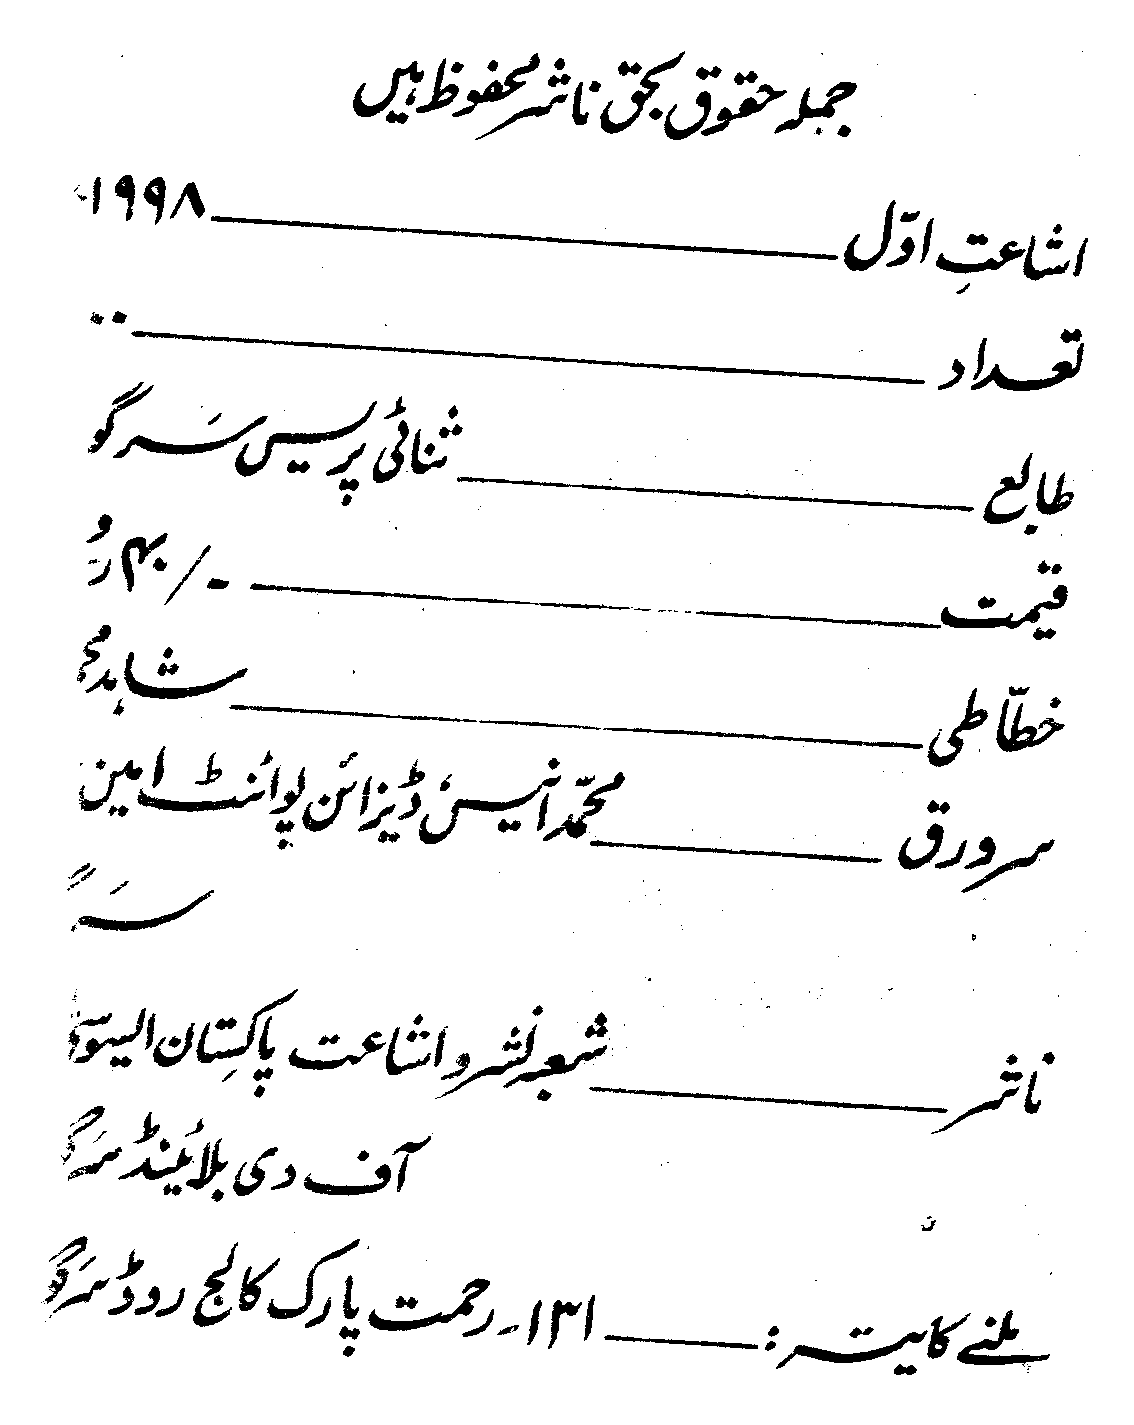 جملہ حقوق بحق ناشر محفوظ ہیں
اشاعتِ اوّل ۱۹۹۸
تعداد ۰۰
طابع ثنائی پریس سَرگو
قیمت ۴۰/- رُو
خطّاطی شاہد
سرورق محمّد انیسؔ ڈیزائن پوائنٹ امین
سَرگ
ناشر شعبہ نشر و اشاعت پاکستان الیسوسی
آف دی بلائینڈ سَرگ
ملنے کا پتہ : ۱۳۱۔ رحمت پارک کالج روڈ سَرگو